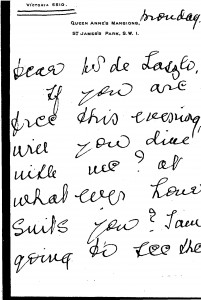 Victoria 2210.
Queen Anne's Mansions,
St James's Park, S.W.1.
Monday.
Dear Mr de Laszlo,
If you are
free this evening
will you dine
with me? at
whatever hour
suits you? I am
going to see the